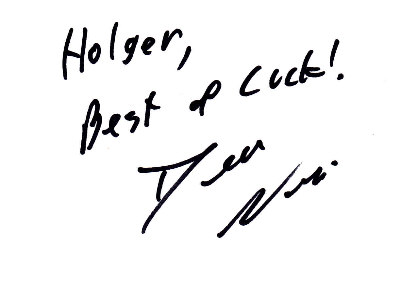 Holger,
Best of Luck!